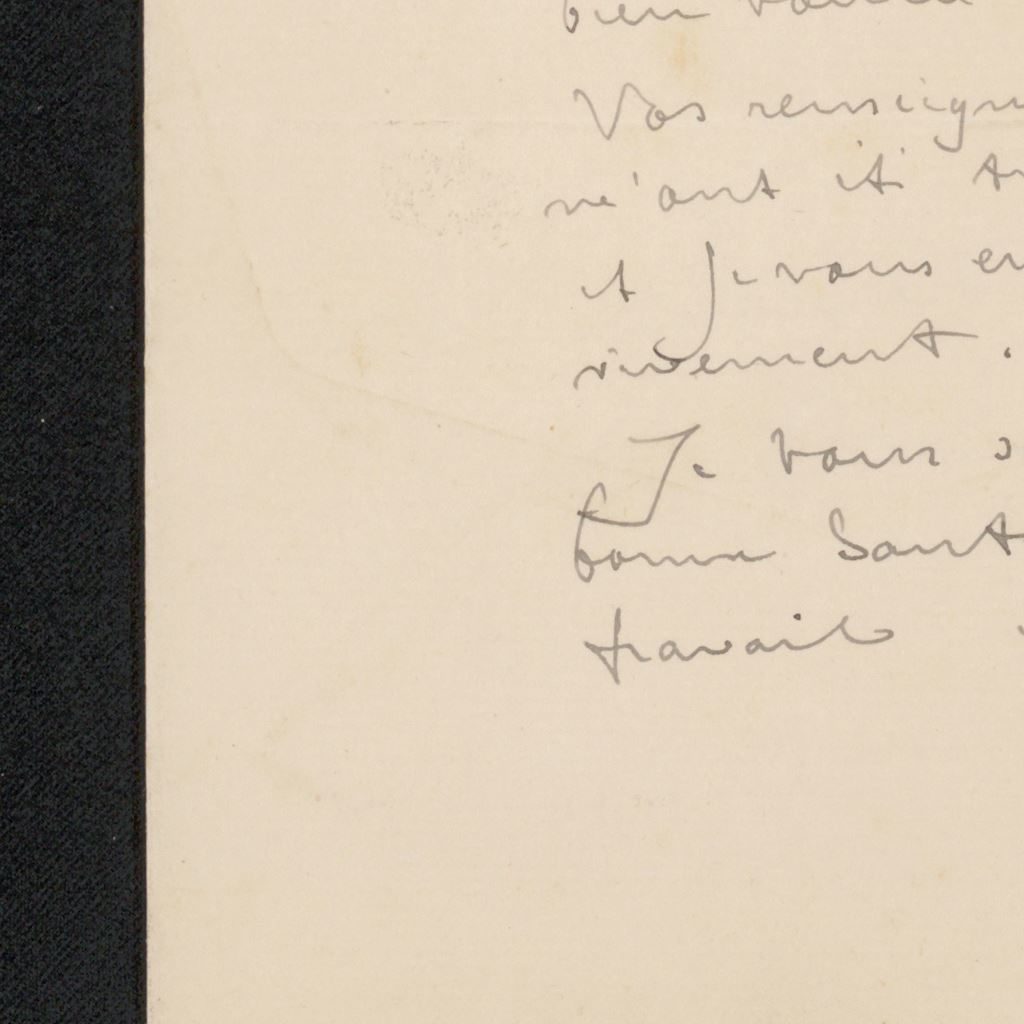 bien voulu
Vos renseign
m'ont été tr
et je vous en
vivement.
Je vous s
bonne sant
travail